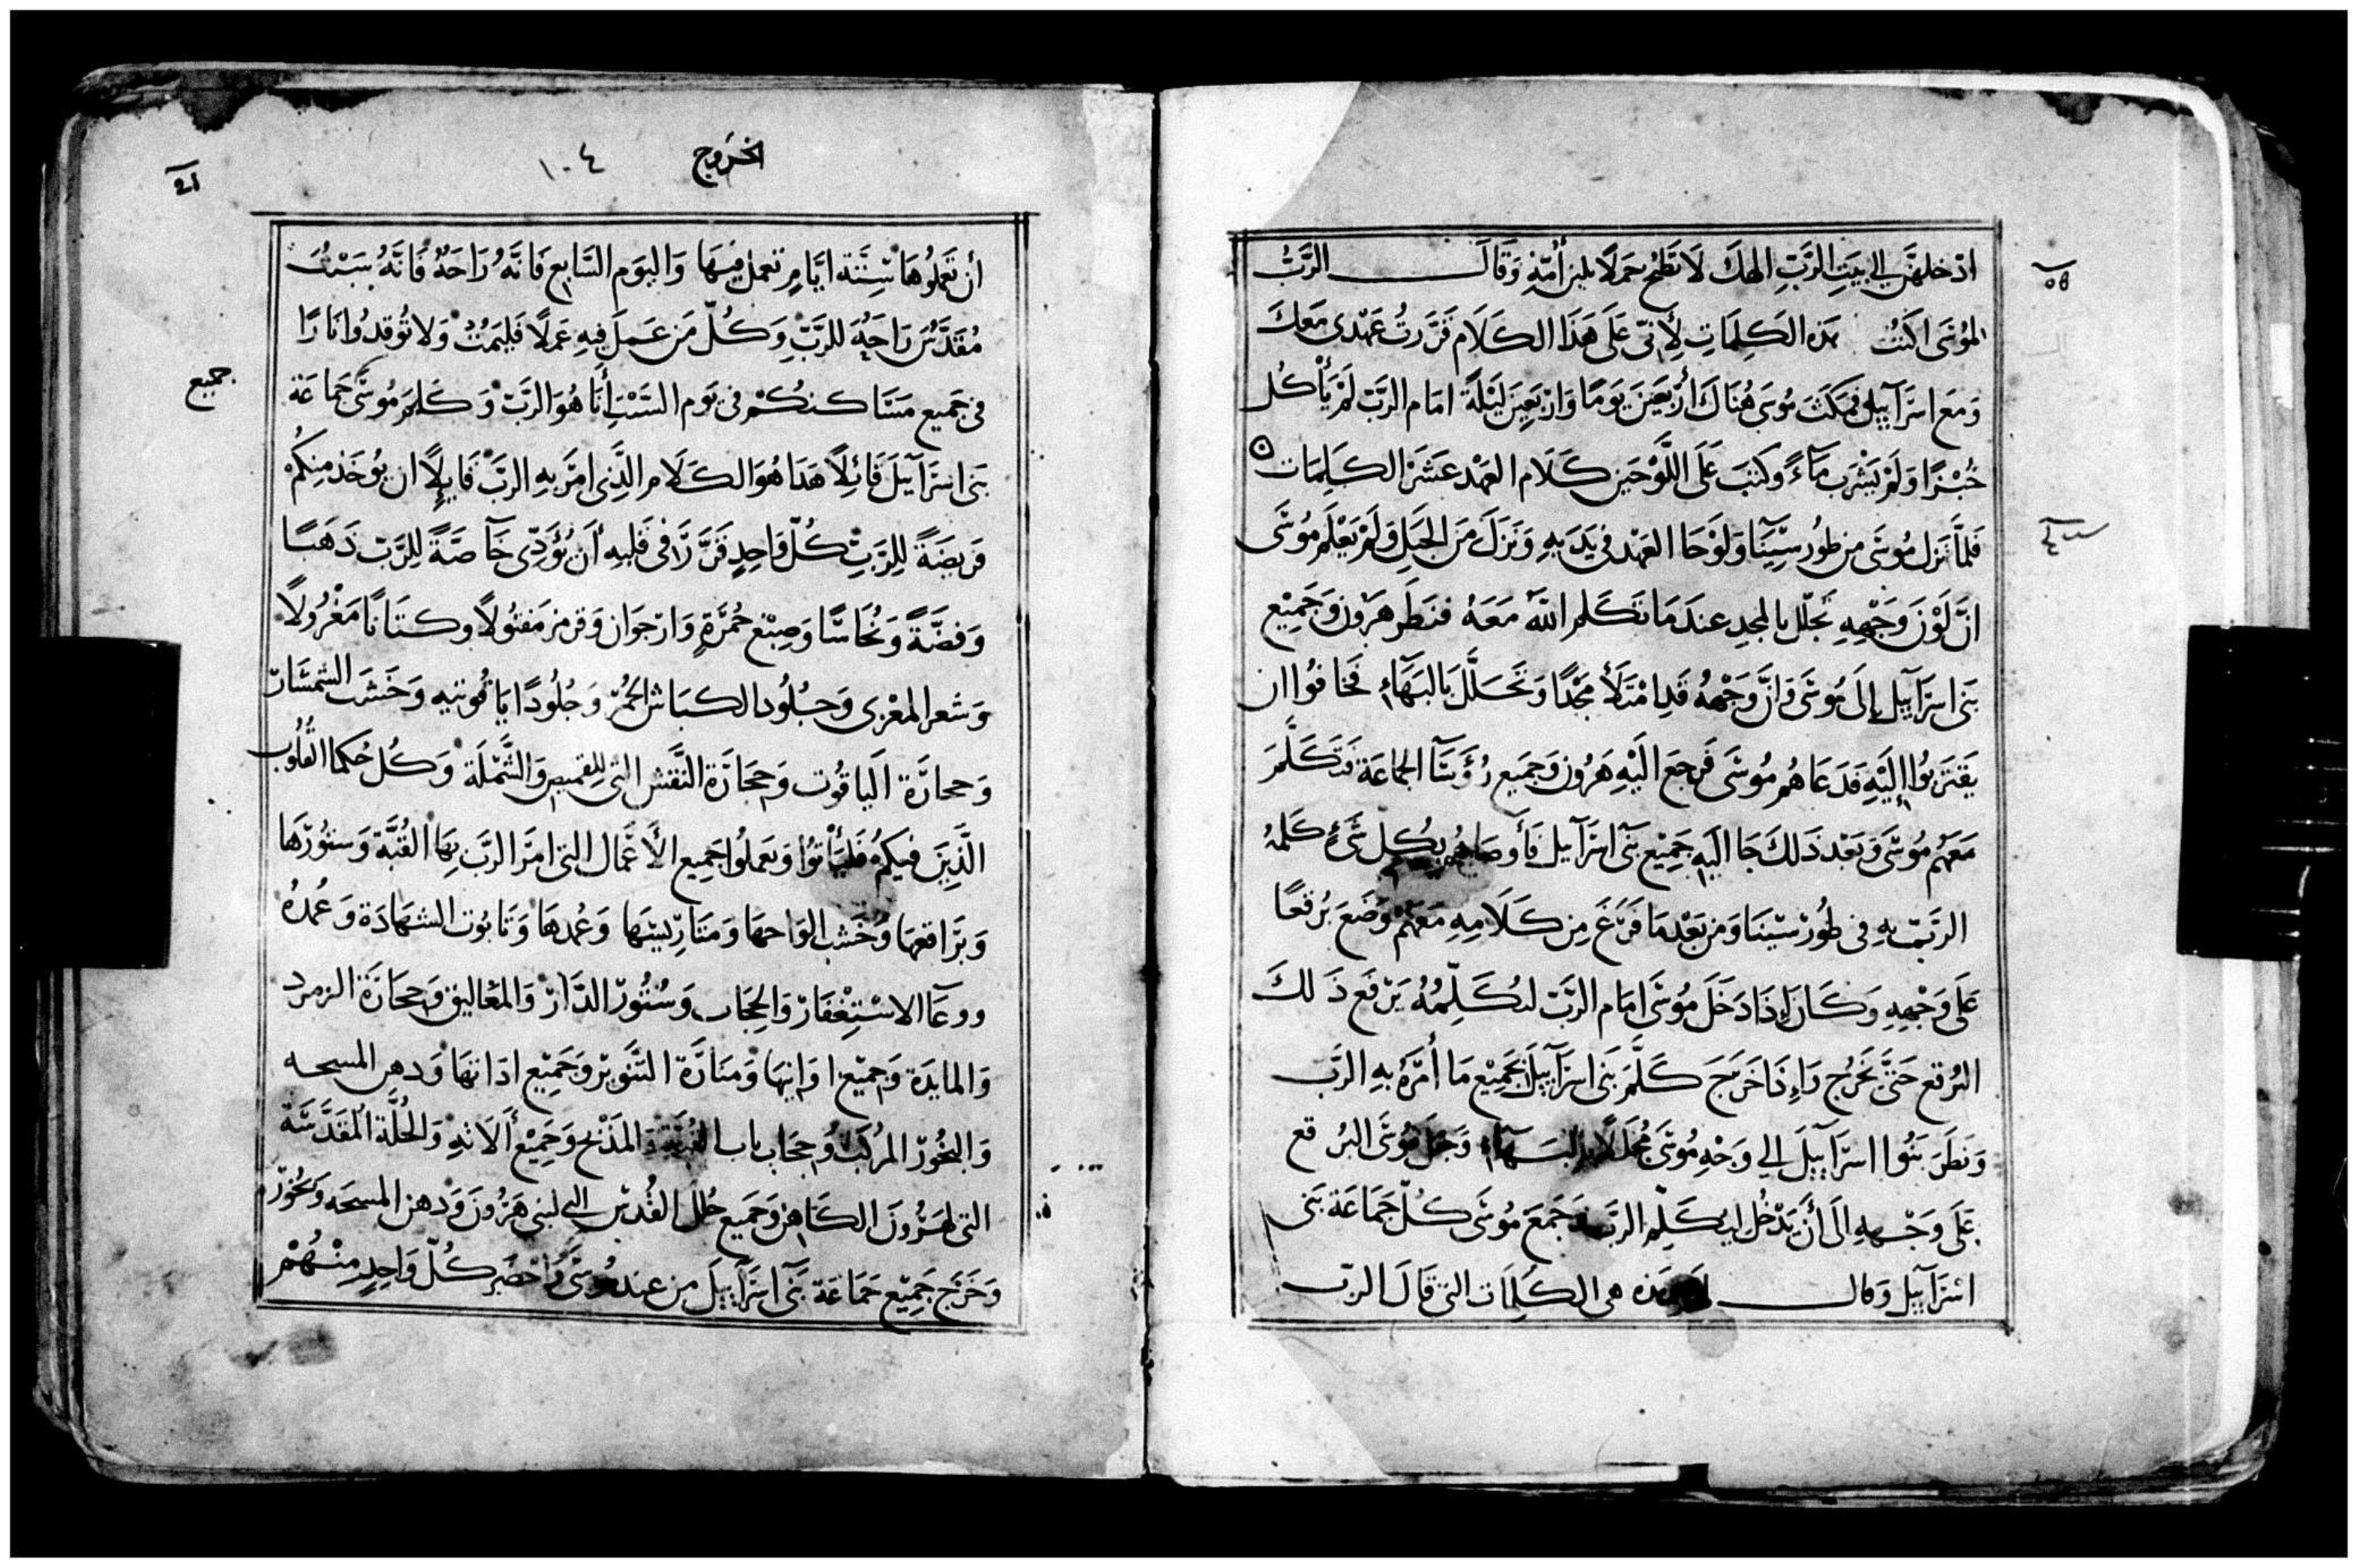 ادخلهن الى بيت الرَّبِّ الهك لا تطبخ حملًا بلبن أُمِّهِ وَقَالَ الرَّبُّ
لموُسَى اكتب هذه الكَلِمَاتِ لِأَنّى عَلَى هَذَا الكَلَام قَرَّرتُ عَهْدى مَعَكَ
وَمَع اسرَآييل فمَكَثَ مُوسَى هُنَاكَ أَرْبَعَينَ يَوَمًا وَارْبَعِينَ لَيْلَةً امَام الرَّبّ لَمْ يَأْكُل
خُبْزًا وَلَمْ يَشْرَب مَآءً وكتبَ عَلَى اللَّوْحَين كَلَام العَهْد عَشَرَ الكَلِمَات
فَلمَّا نَزل مُوسَى من طُور سِيِنَآ وَلَوْحَا العَهْد فى يَدَيهِ وَنَزَلَ مَن الجَبَلِ وَلَمْ يَعْلَم مُوسَى
انَّ لَوْنَ وَجْهِهِ تجلّل بالمجدِ عندَ مَا تكَلم اللّه مَعَهُ فنظَر هَرُون وَجَمِيْع
بَنى اسرَآييل إِلَى مُوسَى وَانَّ وَجْههُ قَدِ امْتَلَأَ مَجْدًا وَتَجَلَّلَ بَالبَهَآءِ فَخَافُوا ان
يَقتَربُوا إِلَيْهِ فدَعَاهُم مُوسَى فَرجع الَيْهِ هَرُون وَجَميع رُؤَسَآ الجمَاعَة فتَكَلَّمَ
مَعَهُم مُوسَى وَبَعْد ذَلكَ جَا الَيهِ جَمِيْع بَنى اسرَآييل فَأَوصَاهُم بكُلّ شَىءٍ كَلمهُ
الرَّبّ بهِ فى طُورْ سْيْنَا وَمن بَعْد مَا فَرَغَ مِن كَلَامِهِ مَعَهُمْ وَضَعَ بُرقعًا
عَلَى وَجْههِ وَكَانَ إِذَا دَخَلَ مُوسَى امَام الرَّبّ لىُكَلِّمُهُ يَرْفَع ذَلكَ
البُرقع حَتَّى يَخَرُج وَإِذَا خَرَجَ كَلَّمَ بَنى اسرَآييلَ بجَمِيْع مَا أُمَرَهُ بِهِ الرَّب
وَنَظَرَ بَنُوا اسرَآييلَ الى وَجْهِ مُوسَى مُجَلَلًا بالبَهَآء وَجعَل مُوسَى البُرقع
عَلَى وَجْههِ الَى أَنْ يَدْخُل ليُكَلِّم الرَّب وَجَمَعَ مُوسَى كُلّ جَمَاعَة بَنى
اسْرَآييل وَقال لهم هَذه هى الكَلِمَات التى قَالَ الرّب
الخروج ١٠٤
أن تَعمَلُوهَا سِتَّة ايَّامٍ تعمل فيهَا وَاليوَم السَّابع فَانَّهُ رَاحَةٌ فَانَّهُ سَبْتٌ
مُقَدَّسٌ رَاحَةٌ للرَّبِّ وَكُلّ مَن عَمِلَ فِيهِ عَمَلًا فَليَمُتْ وَلا تُوقدُوا نَارًا
فى جَميع مَسَاكنكُمْ فى يَوم السَّبْت أَنَا هُوَ الرَّبّ وَكَلمَ مُوسَى جَمَاعَة
جميع
بَنى اسرَآييلَ قَائِلًا هَذَا هُوَ الكَلَام الَّذِى امَر بِهِ الرَّبّ قَايلًا ان يوُخَذ مِنكُمْ
فَريضَةً لِلرَّبِّ كُلّ وَاحِدٍ قَرَّرَ فى قَلبِهِ أن يُؤَدّى خَآصَّةً لِلرَّبّ ذَهَبًا
وَفضَّةً وَنُحَاسًا وَصِبْغ حُمْرَةٍ وَارجوَان وَقرمز مَفتُولًا وكتَانًا مَغْزُولًا
وَشعر المعْزى وَجُلُود الكبَاش الحُمْر وَجُلُودًا يَاقوتيه وَخَشَب الشمشَارْ
وَحجارَة اليَاقوُت وَحجَارَة النَّقش التى للقميص وَالشَّمْلَة وَكُل حُكما القُلُوب
الَّذِينَ فيكمُ فَليَأتوُا وَيعملُوا جَميع الأَعْمال التى امَر الرَّبّ بهَا القُبَّة وَستُورْهَا
وَبَرَاقعهَا وَخَشب الوَاحهَا وَمتَارّيسهَا وَعُمدهَا وَتَابُوت الشهَادَة وَعُمدُهُ
ووعَآ الاسْتغْفَارْ وَالحِجَاب وَسُتُورْ الدَّارْ وَالمعَاليق وَحجَارَة الزمرد
وَالمايدَة وَجَميْع اوَانيهَا وَمنَارَة التَّنوير وَجَمِيْع ادَاتهَا وَدهن المسحه
وَالبخُورْ المرُكَبْ وَحجَاب باب القُبَّة وَالمَذْبح وَجَمِيْع أَلاتهِ وَالحُلَّة المُقَدَّسَة
التى لهَرُونَ الكَاهِن وَجَميع حُلل القُدْس التى لبنى هَرُونَ وَدهن المسحَه وَبخُورْ
وَخَرَجَ جَمِيْع جَمَاعَة بَنى اسرَآييلَ مِن عند مُوسَى وَاحْضَر كُلّ وَاحِدٍ مِنْهُمْ